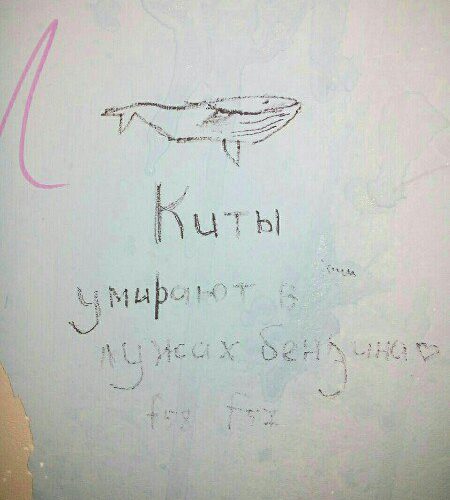 Киты
умирают в
лужах бензина♡